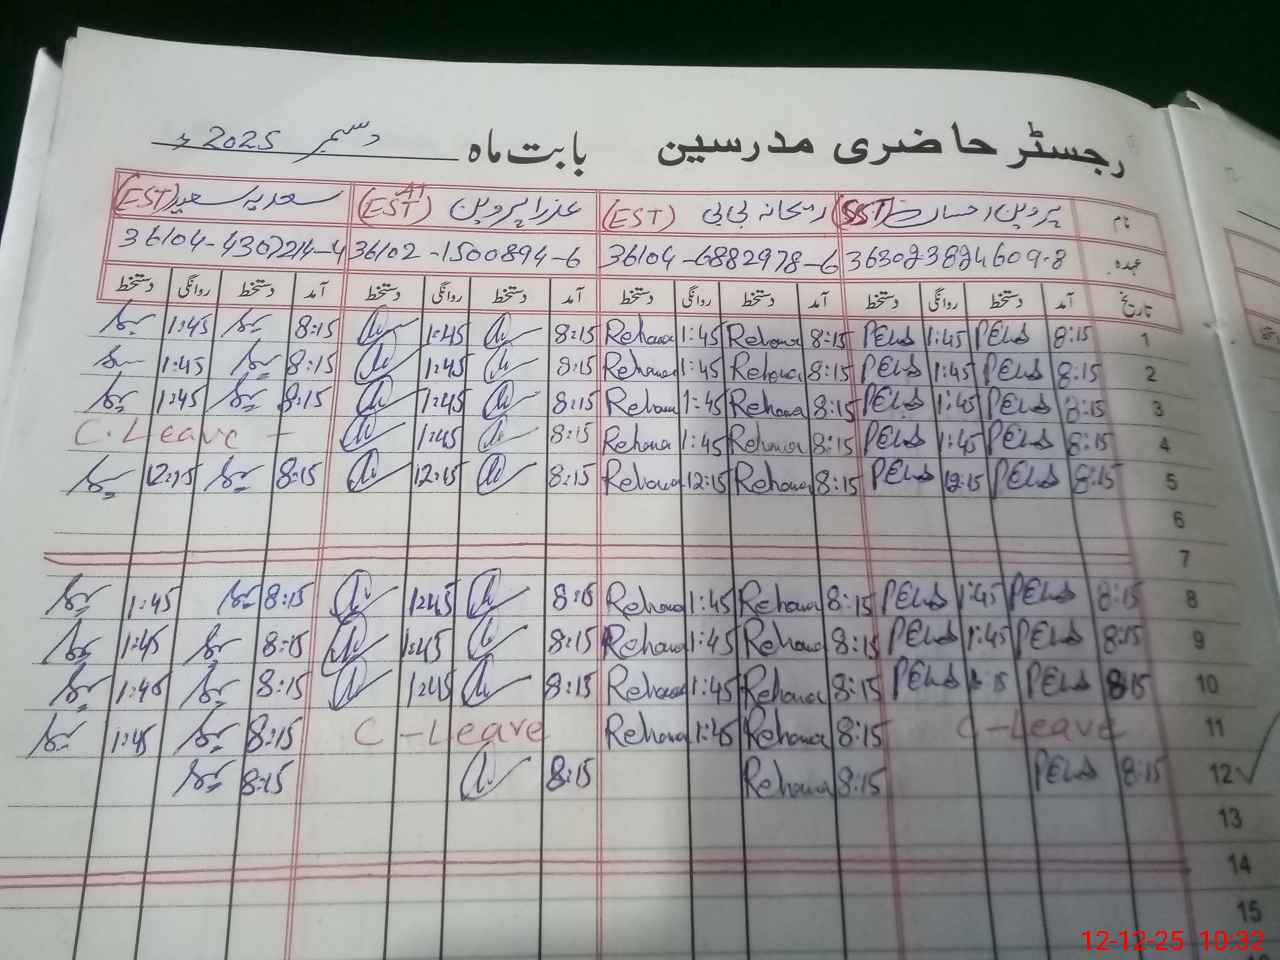 رجسٹر حاضری مدرسین بابت ماہ دسمبر 2025ء
نام پروین احسان (SST) ریحانہ بی بی (EST) عذرا پروین (EST) سعدیہ سعید (EST)
عہدہ 36302-3824609-8 36104-6882978-6 36102-1500894-6 36104-4307214-4
تاریخ آمد دستخط روانگی دستخط آمد دستخط روانگی دستخط آمد دستخط روانگی دستخط آمد دستخط روانگی دستخط
1 8:15 1:45 8:15 Rehana 1:45 Rehana 8:15 1:45 8:15 1:45
2 8:15 1:45 8:15 Rehana 1:45 Rehana 8:15 1:45 8:15 1:45
3 8:15 1:45 8:15 Rehana 1:45 Rehana 8:15 1:45 8:15 1:45
4 8:15 1:45 8:15 Rehana 1:45 Rehana 8:15 1:45 C. Leave -
5 8:15 12:15 8:15 Rehana 12:15 Rehana 8:15 12:15 8:15 12:15
6
7
8 8:15 1:45 8:15 Rehana 1:45 Rehana 8:15 1:45 8:15 1:45
9 8:15 1:45 8:15 Rehana 1:45 Rehana 8:15 1:45 8:15 1:45
10 8:15 8:15 Rehana 1:45 Rehana 8:15 1:45 8:15 1:45
11 C-Leave 8:15 Rehana 1:45 Rehana C-Leave 8:15 1:45
12 8:15 8:15 Rehana 8:15 8:15
13
14
15
12-12-25 10:32